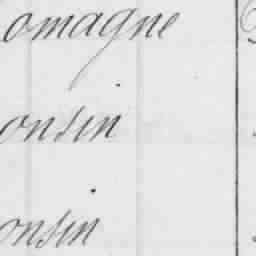 omagne
onsin
onsin